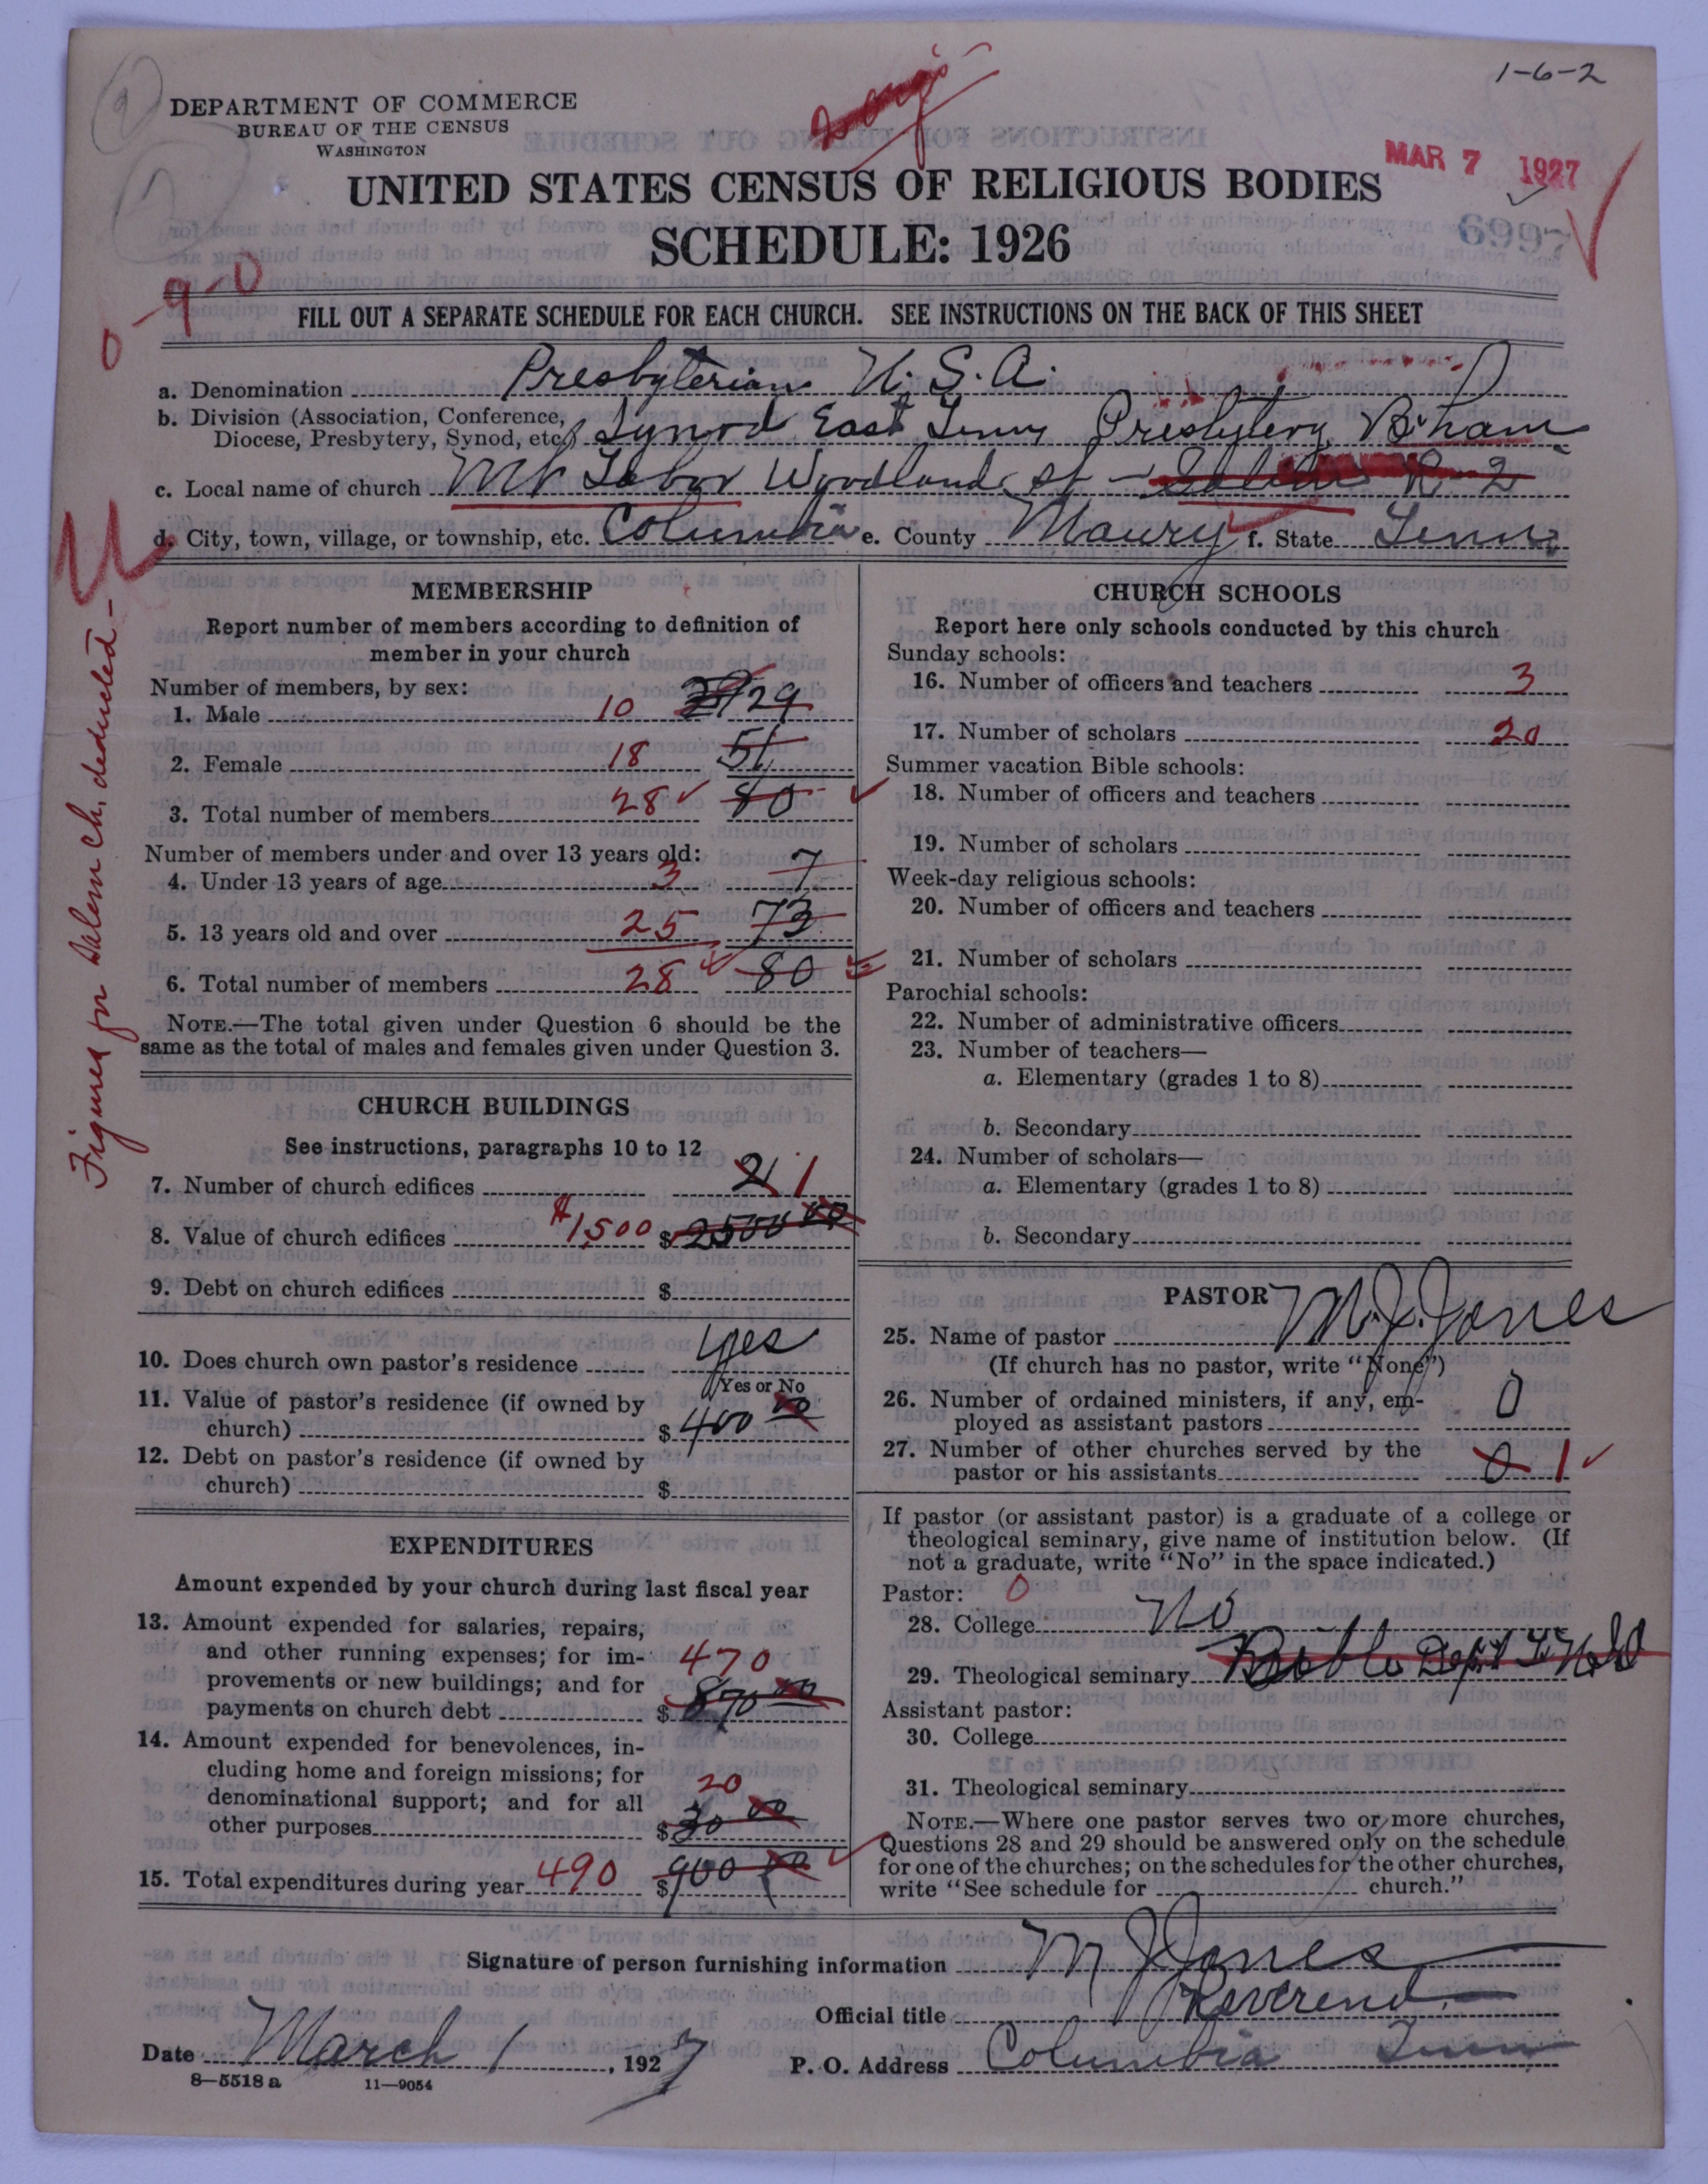 1-6-2
DEPARTMENT OF COMMERCE
BUREAU OF THE CENSUS
WASHINGTON
MAR 7 1927
UNITED STATES CENSUS OF RELIGIOUS BODIES
6997
SCHEDULE: 1926
0-9-0
FILL OUT A SEPARATE SCHEDULE FOR EACH CHURCH. SEE INSTRUCTIONS ON THE BACK OF THIS SHEET
a. Denomination Presbyterian U.S.A.
b. Division (Association, Conference, Diocese, Presbytery, Synod, etc.) Synod East Tenn Presbytery B'ham
c. Local name of church Mt Tabor Woodland St - Salem R-2
d. City, town, village, or township, etc. Columbia e. County Maury f. State Tenn
Figures for Salem Ch. deducted-
MEMBERSHIP
Report number of members according to definition of
member in your church
Number of members, by sex:
1. Male 10 29
2. Female 18 51
3. Total number of members 28 80
Number of members under and over 13 years old:
4. Under 13 years of age 3 7
5. 13 years old and over 25 73
6. Total number of members 28 80
NOTE.—The total given under Question 6 should be the
same as the total of males and females given under Question 3.
CHURCH BUILDINGS
See instructions, paragraphs 10 to 12
7. Number of church edifices 2 1
8. Value of church edifices $1,500 $2500 00
9. Debt on church edifices $
10. Does church own pastor's residence yes
Yes or No
11. Value of pastor's residence (if owned by
church) $400 00
12. Debt on pastor's residence (if owned by
church) $
EXPENDITURES
Amount expended by your church during last fiscal year
13. Amount expended for salaries, repairs,
and other running expenses; for im-
provements or new buildings; and for 470
payments on church debt $870 00
14. Amount expended for benevolences, in-
cluding home and foreign missions; for
denominational support; and for all 20
other purposes $30 00
15. Total expenditures during year 490 $900 00
CHURCH SCHOOLS
Report here only schools conducted by this church
Sunday schools:
16. Number of officers and teachers 3
17. Number of scholars 20
Summer vacation Bible schools:
18. Number of officers and teachers
19. Number of scholars
Week-day religious schools:
20. Number of officers and teachers
21. Number of scholars
Parochial schools:
22. Number of administrative officers
23. Number of teachers—
a. Elementary (grades 1 to 8)
b. Secondary
24. Number of scholars—
a. Elementary (grades 1 to 8)
b. Secondary
PASTOR
25. Name of pastor M. J. Jones
(If church has no pastor, write "None")
26. Number of ordained ministers, if any, em-
ployed as assistant pastors 0
27. Number of other churches served by the
pastor or his assistants 0 1
If pastor (or assistant pastor) is a graduate of a college or
theological seminary, give name of institution below. (If
not a graduate, write "No" in the space indicated.)
Pastor: 0
28. College No
29. Theological seminary Bible Dept
Assistant pastor:
30. College
31. Theological seminary
NOTE.—Where one pastor serves two or more churches,
Questions 28 and 29 should be answered only on the schedule
for one of the churches; on the schedules for the other churches,
write "See schedule for church."
Signature of person furnishing information M J Jones
Official title Reverend
Date March 1, 1927 P. O. Address Columbia Tenn
8—5518 a 11—9054